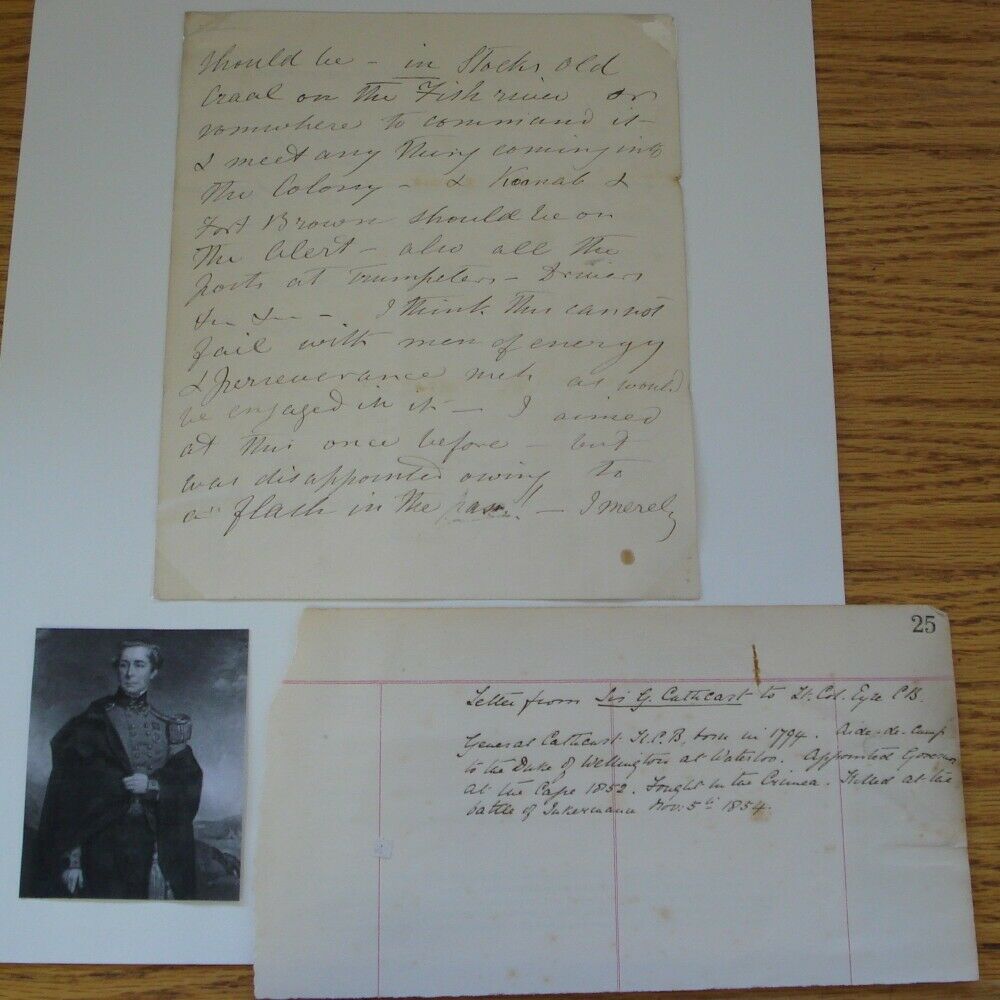 should be – in Stocks old
Craal on the Fish river or
somwhere to command it –
& meet any thing coming into
the Colony – & Koonab &
Fort Brown should be on
the Alert – also all the
posts at Trumpeters – Drivers
&c &c – I think this cannot
fail with men of energy
& perseverance such as would
be engaged in it – I aimed
at this once before – but
was disappointed owing to
a flash in the pan! – I merely
25
Letter from Sir G. Cathcart to Lt. Col. Eyre C.B.
General Cathcart K.C.B, born in 1794. Aide-de-camp
to the Duke of Wellington at Waterloo. Appointed Governor
at the Cape 1852. Fought in the Crimea. Killed at the
battle of Inkermann Nov. 5th 1854.